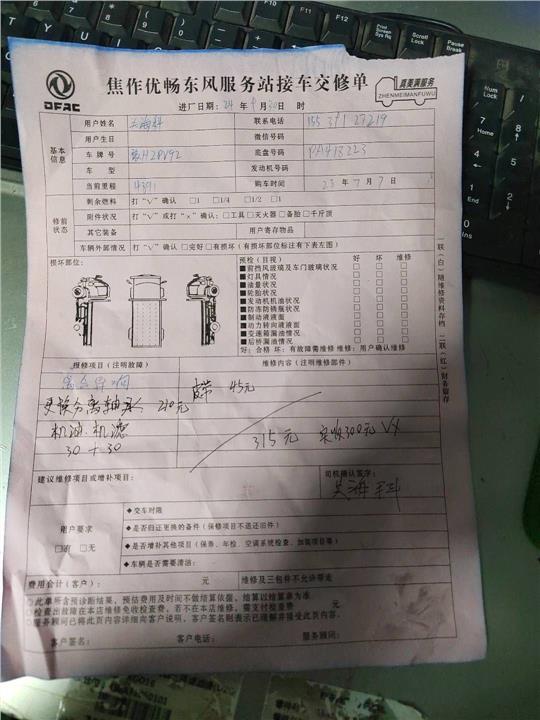 DFAC
焦作优畅东风服务站接车交修单
真美满服务
ZHENMEIMANFUWU
进厂日期：24年 月30日 时
基本信息
用户姓名
联系电话 155 391 27219
用户生日 微信号码
车牌号 豫H2RV92 底盘号码 PA413223
车型 发动机号码
当前里程 4391 购车时间 23年7月7日
修前状态
剩余燃料 打“V”确认 □1 □1/4 □1/2 □1
附件状况 打“V”或打“×”确认：□工具□灭火器□备胎□千斤顶
其它装备 用户寄存物品
车辆外部情况 打“V”确认 □完好□有损坏（有损坏部位标注有下表左图）
损坏部位：
预检（目视） 好 坏 维修
■前挡风玻璃及车门玻璃状况 □ □ □
■灯具情况 □ □ □
■油量状况 □ □ □
■轮胎状况 □ □ □
■发动机机油状况 □ □ □
■防冻防锈瓶状况 □ □ □
■制动液液面 □ □ □
■动力转向液液面 □ □ □
■变速箱漏油情况 □ □ □
■后桥漏油情况 □ □ □
好：合格 坏：有故障需维修 维修：用户确认维修
一联（白）随维修资料存档 二联（红）财务留存
报修项目（注明故障） 维修内容（注明维修部件）
离合异响
皮带 45元
更换分离轴承 210元
机油.机滤
30 + 30
315元 实收300元 VX
建议维修项目或增补项目：
司机确认签字：
用户要求
□有 □无
◆交车时限
◆是否归还更换的备件（保修项目不退还旧件）
◆是否增补其他项目（保养、年检、空调系统检查、加装项目等）
◆车辆是否需要清洁：
费用合计（客户）： 元 维修及三包件不允许带走
○此单所含预诊断结果，预估费用及时间不做结算依据，结算以结算单为准
○检查出故障在本店维修免收检查费，若不在本店维修，需支付检查费 元
○服务顾问已将此页内容详细向客户说明，客户签名则表示已理解并接受此页内容。
客户签名： 客户电话： 服务顾问：